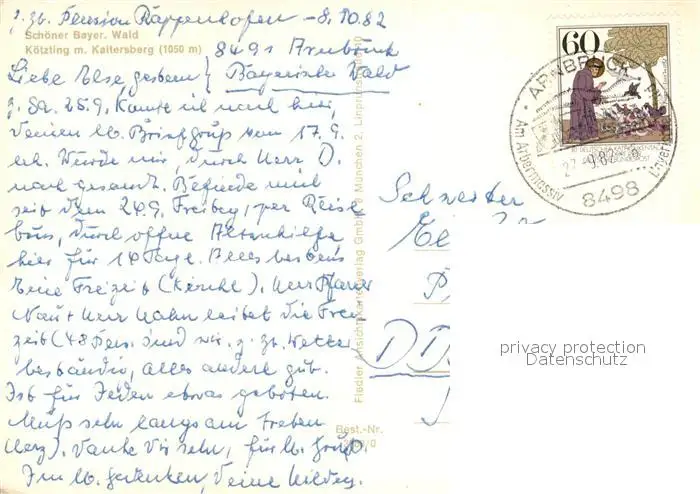 z. Zt. Pension Rappenhofen - 8.10.82
Schöner Bayer. Wald
Kötzting m. Kaitersberg (1050 m)
8491 Arnbruck
Liebe Else, gestern
Bayerischer Wald
z. Sa. 25.9. kamst ich nach hier,
Deinen lb. Briefgruß vom 17.9.
erh. Wurde mir, durch Herr D.
nach gesandt. Befinde mich
seit dem 24.9. Freitag, per Reise
bus, durch offne Altenhilfe
hier für 14 Tage. Alles bestens
Eine Freizeit (Kirchl). Herr Pfarrer
Nau + Herr Hahn leitet die Frei
zeit (48 Pers. sind wir. z. Zt. Wetter
beständig, alles andere gut.
Ist für Jeden etwas geboten.
Muß sehr langsam treten
(Herz). Danke Dir sehr, für lb. Gruß.
Im lb. Gedenken, Deine Hildeg.
Fiedler Ansichtskartenverlag GmbH, 8 München 2, Linprunstraße
Best.-Nr.
60
ARNBRUCK
Am Arbermassiv
27.-9.82
8498
Schwester
DD
privacy protection
Datenschutz